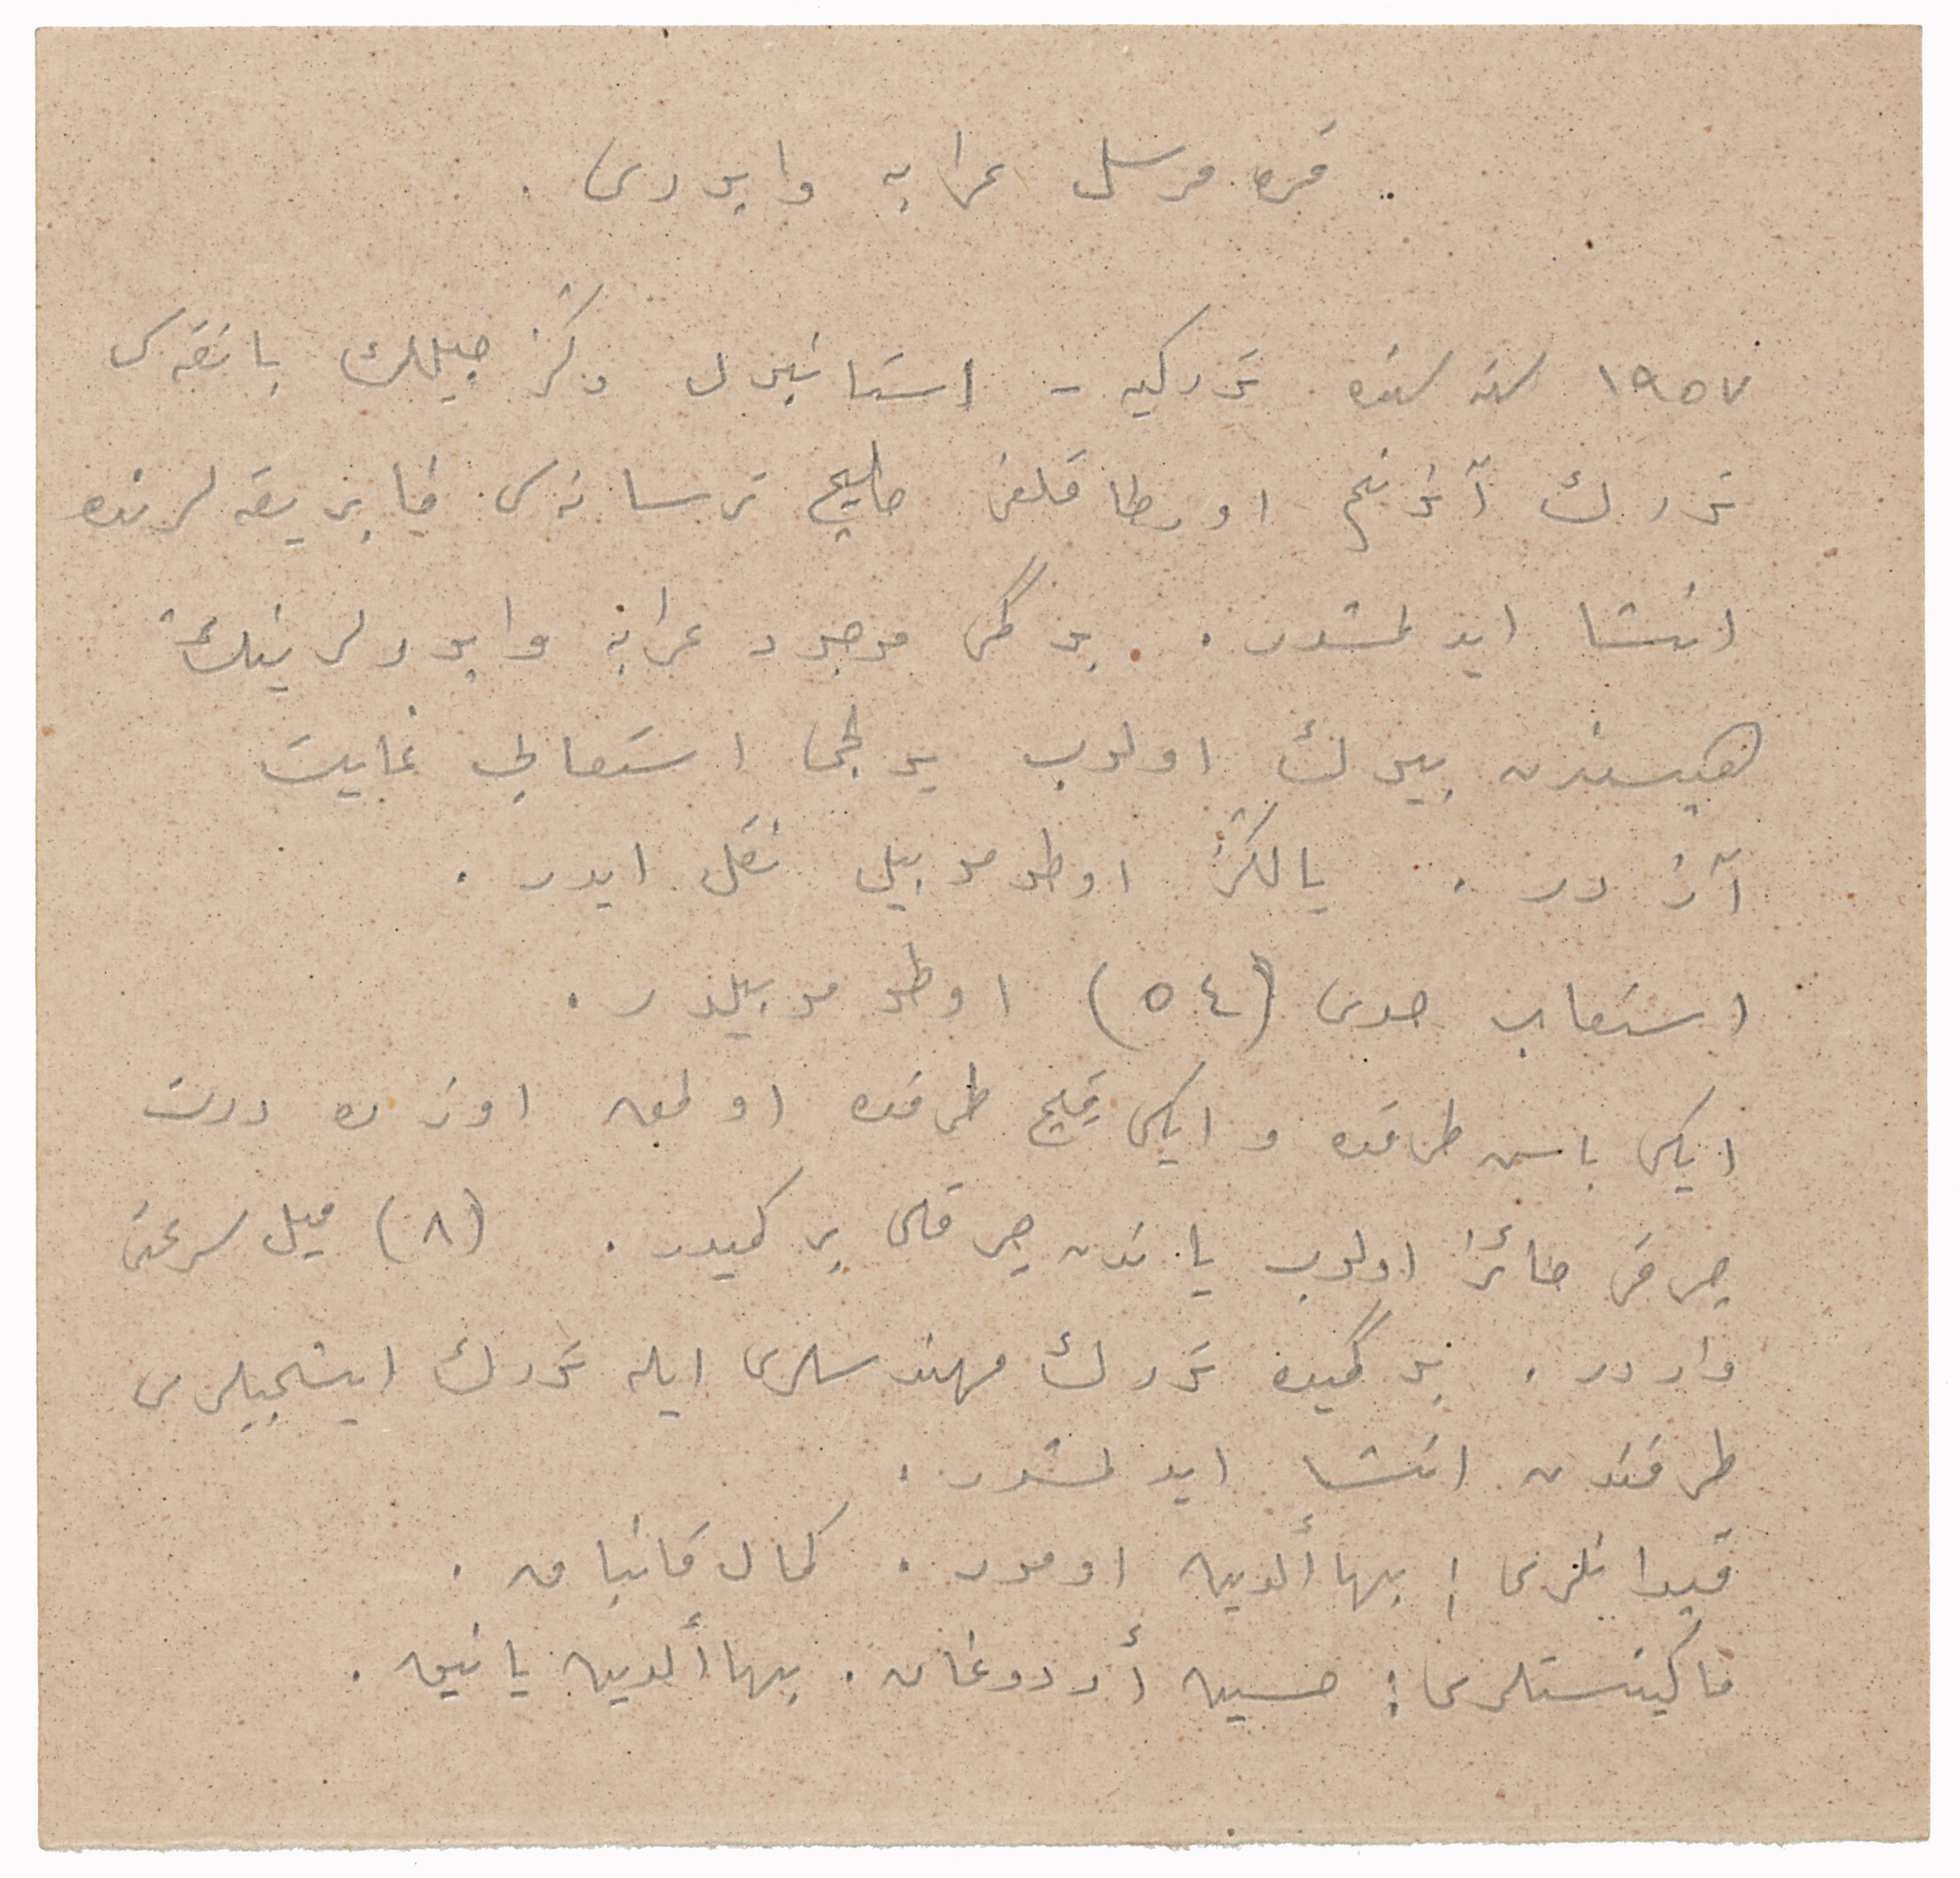 قره مرسل عرابه واپوری .
١٩٥٧ سنه سنده تورکیه - استانبول دکزجیلك بانقه سی
تورك آنونیم اورطاقلغی خلیج ترسانه سی فابریقه لرنده
انشا ایدلمشدر . بو گمی موجود عرابه واپورلرینك
هپسندن بیوك اولوب یولجی استعابی غایت
آزدر . یالکز اوطوموبیل نقل ایدر .
استعاب حدی (٥٤) اوطوموبیلدر .
ایکی باش طرفده و ایکی قیچ طرفده اولمق اوزره درت
چرخی حائز اولوب یاندن چرقلی بر گمیدر . (٨) میل سرعتی
واردر . بو گمیده تورك مهندسلری ایله تورك ایشجیلری
طرفندن انشا ایدلمشدر .
قپدانلری : بهاألدین اومور . کمال قانباق .
ماکینستلری : حسین أردوغان . بهاألدین یانیق .